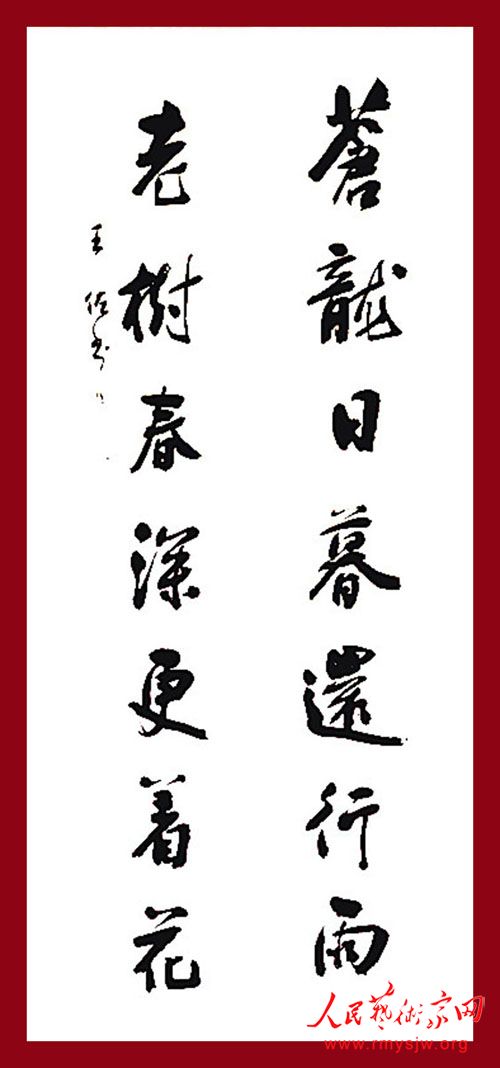 蒼龍日暮還行雨
老樹春深更着花
王佐書
人民藝術家网
www.rmysjw.org